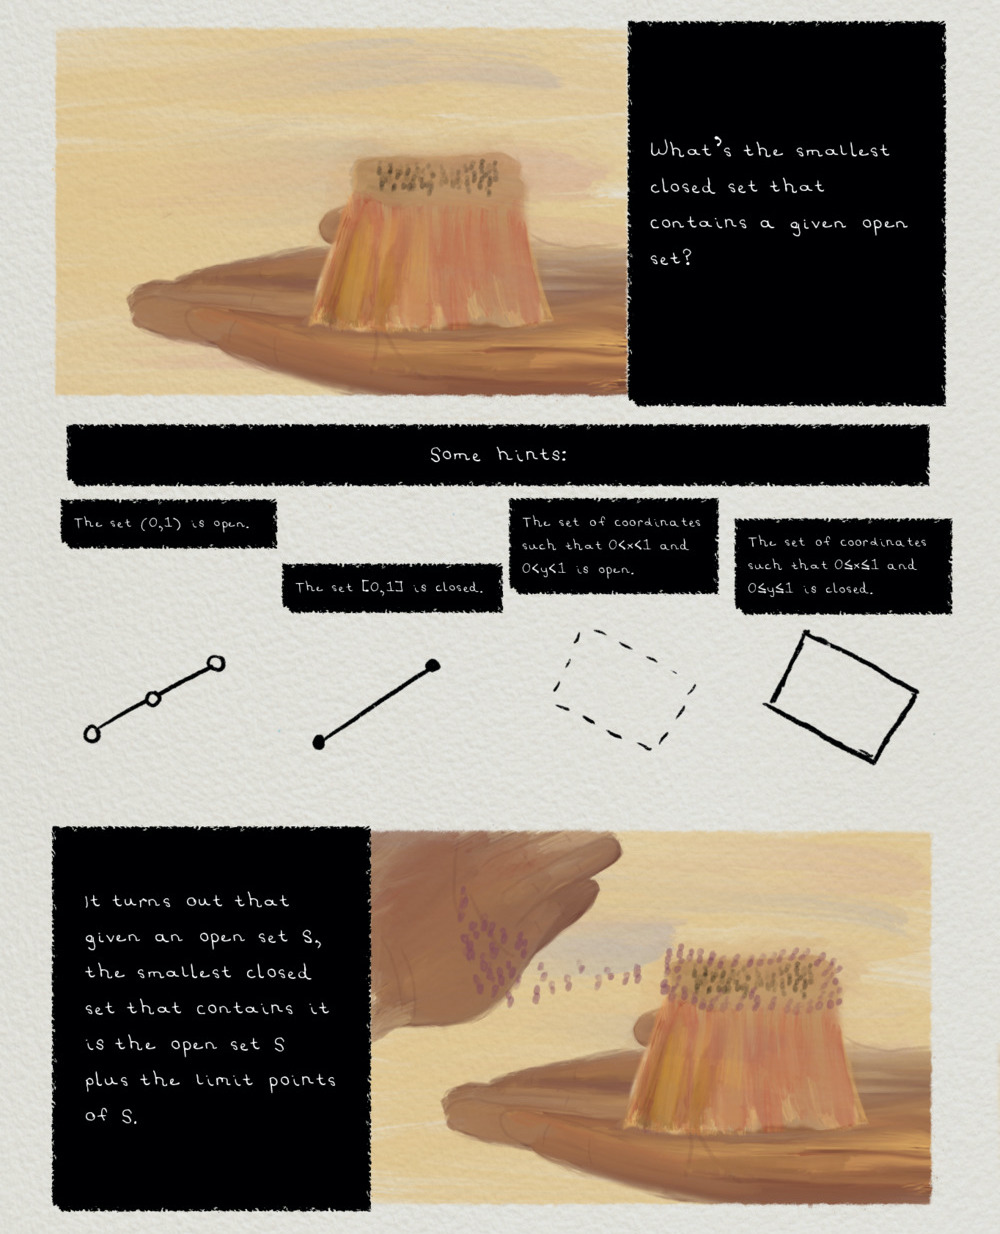 What's the smallest
closed set that
contains a given open
set?
Some hints:
The set (0,1) is open.
The set [0,1] is closed.
The set of coordinates
such that 0<x<1 and
0<y<1 is open.
The set of coordinates
such that 0≤x≤1 and
0≤y≤1 is closed.
It turns out that
given an open set S,
the smallest closed
set that contains it
is the open set S
plus the limit points
of S.